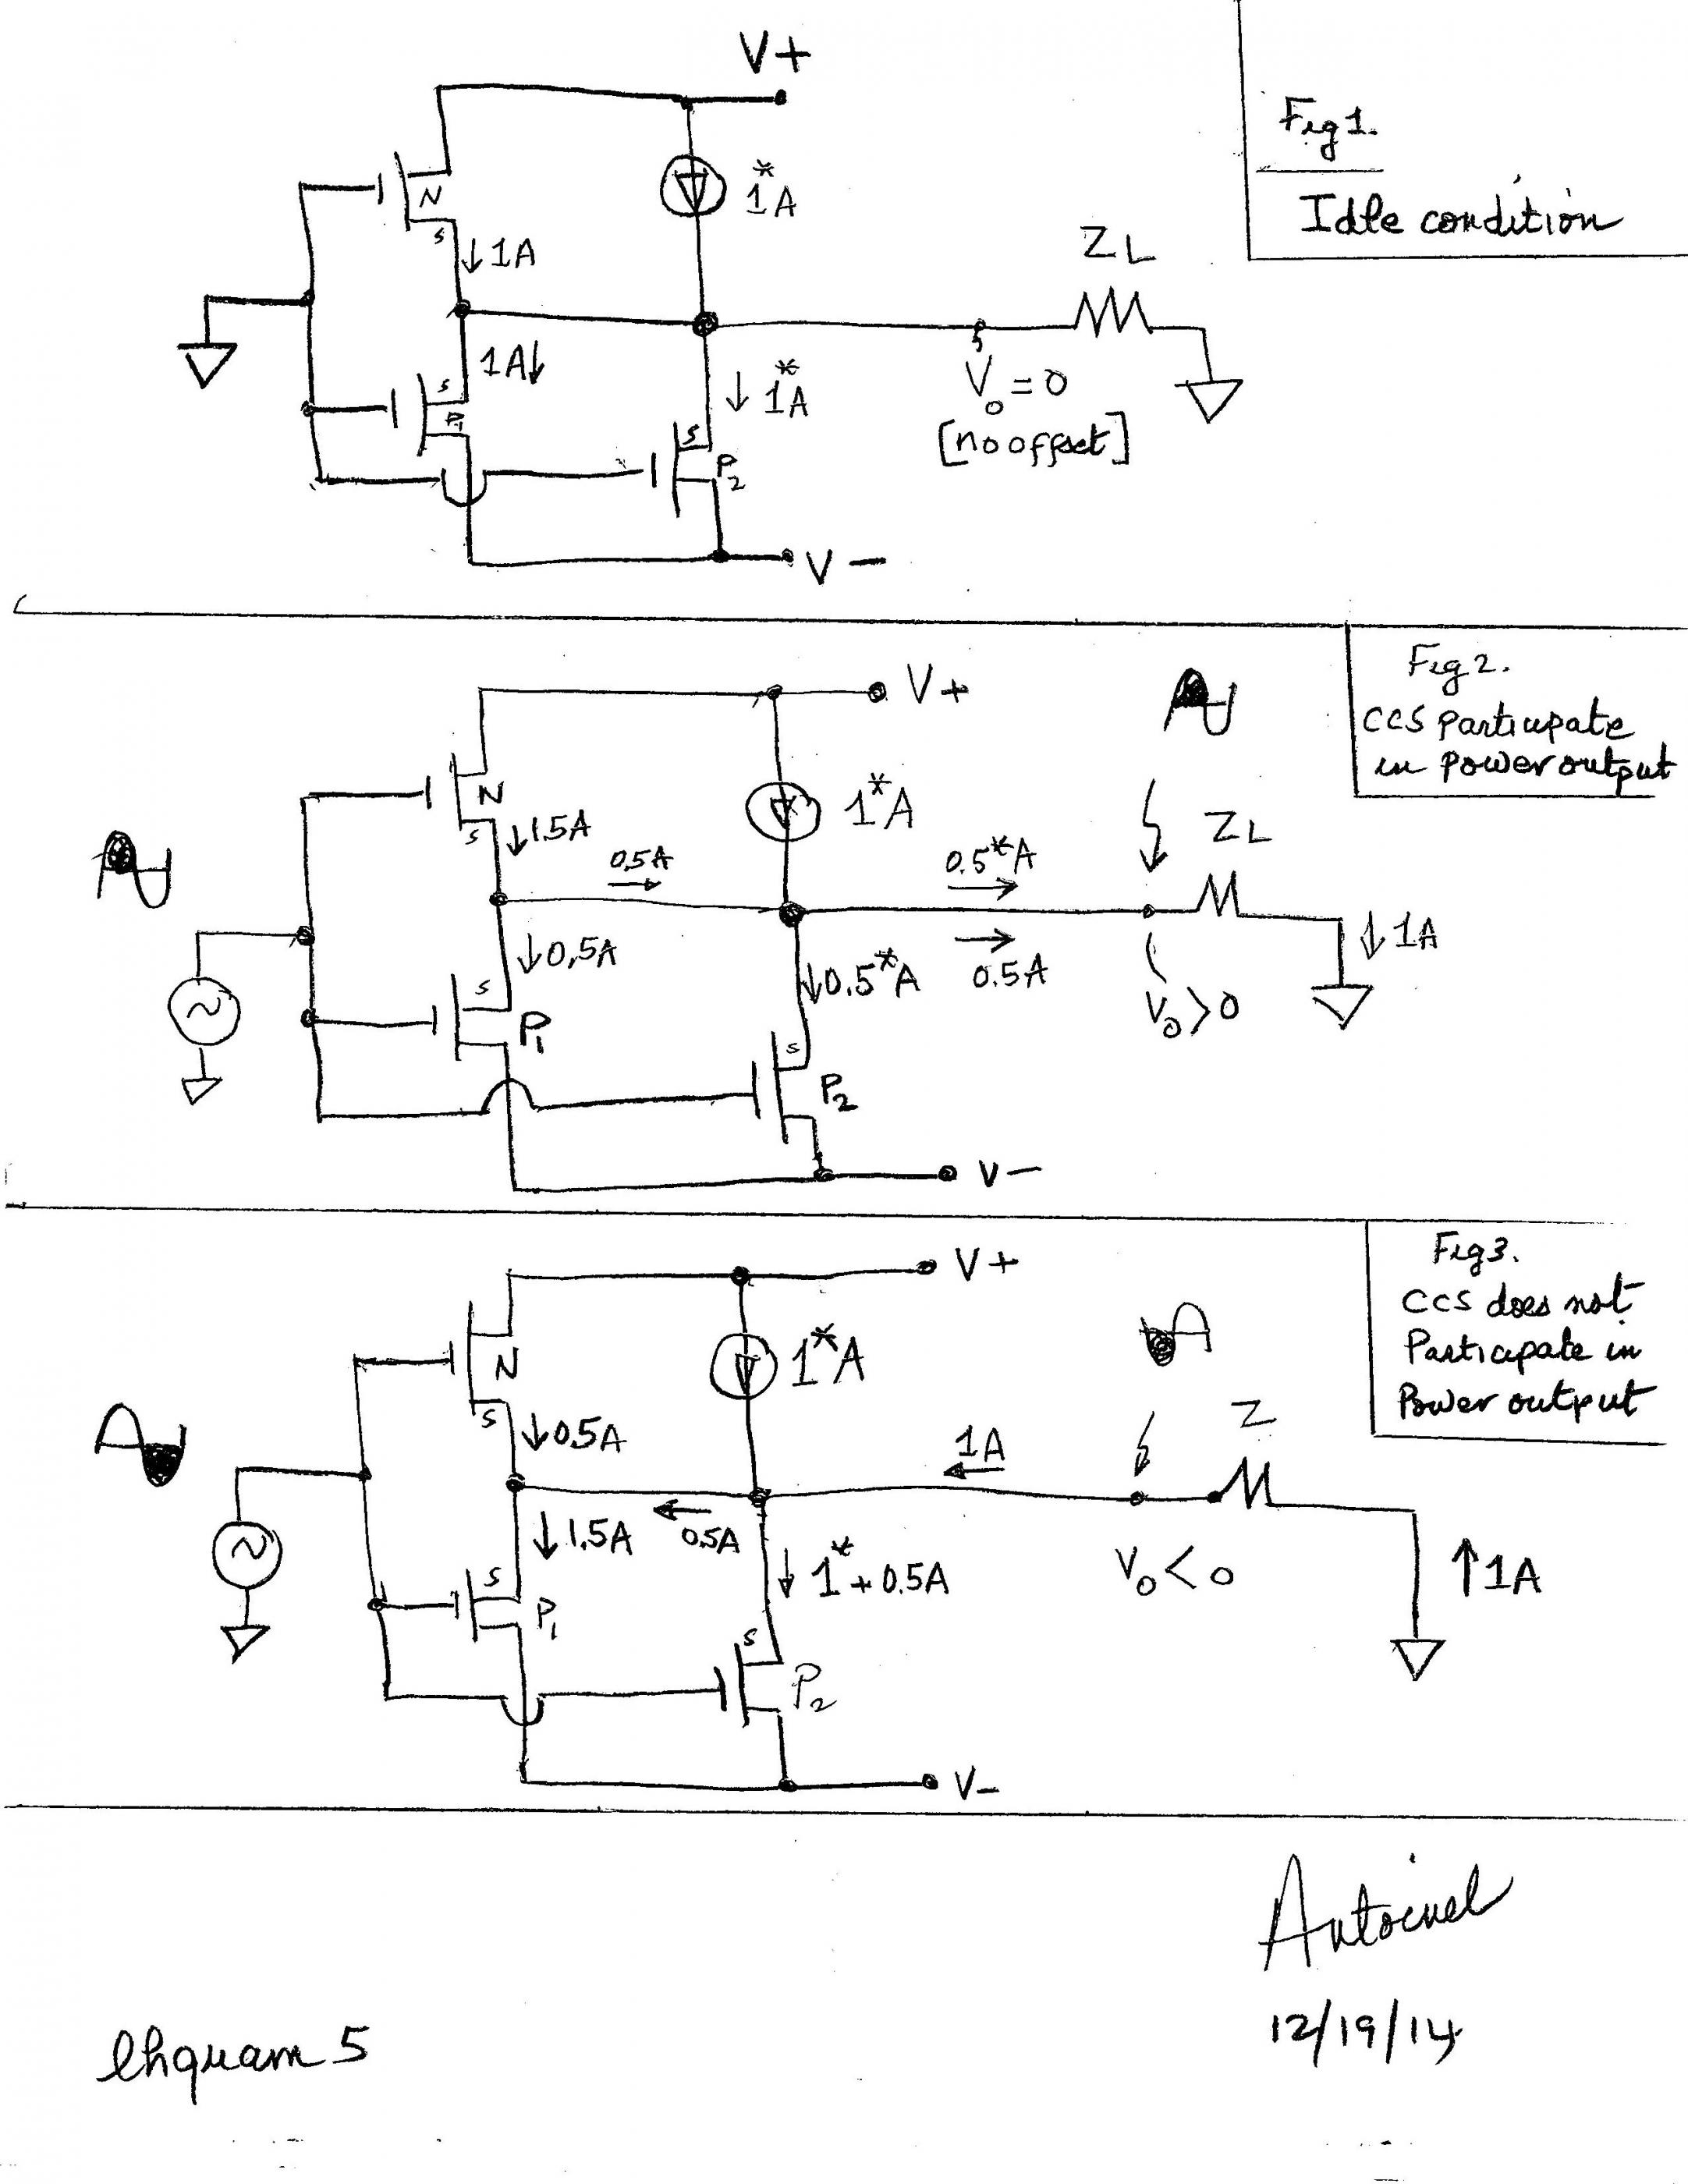 V+
Fig 1.
Idle condition
N
S
↓1A
1*A
ZL
1A↓
S
P1
↓1*A
S
P2
Vo=0
[no offset]
V-
Fig 2.
CCS Participate
in Power output
V+
N
S
↓1.5A
1*A
0.5A
0.5*A
0.5A
ZL
↓1A
↓0.5A
↓0.5*A
S
P1
Vo>0
S
P2
V-
Fig 3.
CCS does not
Participate in
Power output
V+
N
S
↓0.5A
1*A
1A
Z
0.5A
↓1.5A
↓1*+0.5A
Vo<0
↑1A
S
P1
S
P2
V-
12/19/14
lhquam 5